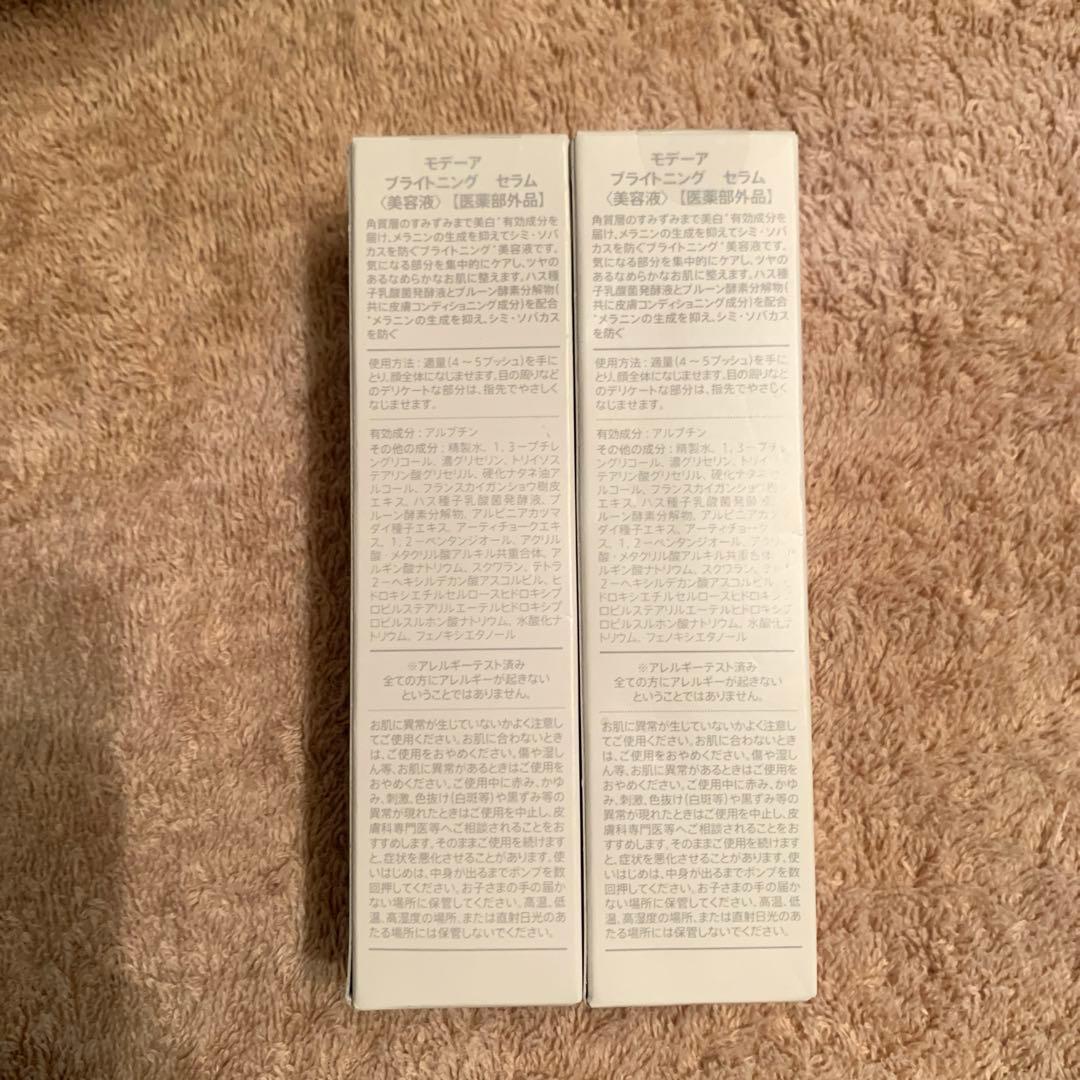 モデーア
ブライトニング セラム
〈美容液〉【医薬部外品】
角質層のすみずみまで美白*有効成分を
届け、メラニンの生成を抑えてシミ・ソバ
カスを防ぐブライトニング*美容液です。
気になる部分を集中的にケアし、ツヤの
あるなめらかなお肌に整えます。ハス種
子乳酸菌発酵液とプルーン酵素分解物(
共に皮膚コンディショニング成分)を配合
*メラニンの生成を抑え、シミ・ソバカス
を防ぐ
使用方法：適量(4～5プッシュ)を手に
とり、顔全体になじませます。目の周りなど
のデリケートな部分は、指先でやさしく
なじませます。
有効成分：アルブチン
その他の成分：精製水、1，3－ブチレ
ングリコール、濃グリセリン、トリイソス
テアリン酸グリセリル、硬化ナタネ油ア
ルコール、フランスカイガンショウ樹皮
エキス、ハス種子乳酸菌発酵液、プ
ルーン酵素分解物、アルピニアカツマ
ダイ種子エキス、アーティチョークエキ
ス、1，2－ペンタンジオール、アクリル
酸・メタクリル酸アルキル共重合体、ア
ルギン酸ナトリウム、スクワラン、テトラ
2－ヘキシルデカン酸アスコルビル、ヒ
ドロキシエチルセルロースヒドロキシプ
ロピルステアリルエーテルヒドロキシプ
ロピルスルホン酸ナトリウム、水酸化ナ
トリウム、フェノキシエタノール
※アレルギーテスト済み
全ての方にアレルギーが起きない
ということではありません。
お肌に異常が生じていないかよく注意し
てご使用ください。お肌に合わないとき
は、ご使用をおやめください。傷や湿し
ん等、お肌に異常があるときはご使用を
おやめください。ご使用中に赤み、かゆ
み、刺激、色抜け(白斑等)や黒ずみ等の
異常が現れたときはご使用を中止し、皮
膚科専門医等へご相談されることをお
すすめします。そのままご使用を続けます
と、症状を悪化させることがあります。使
いはじめは、中身が出るまでポンプを数
回押してください。お子さまの手の届か
ない場所に保管してください。高温、低
温、高湿度の場所、または直射日光のあ
たる場所には保管しないでください。
モデーア
ブライトニング セラム
〈美容液〉【医薬部外品】
角質層のすみずみまで美白*有効成分を
届け、メラニンの生成を抑えてシミ・ソバ
カスを防ぐブライトニング*美容液です。
気になる部分を集中的にケアし、ツヤの
あるなめらかなお肌に整えます。ハス種
子乳酸菌発酵液とプルーン酵素分解物(
共に皮膚コンディショニング成分)を配合
*メラニンの生成を抑え、シミ・ソバカス
を防ぐ
使用方法：適量(4～5プッシュ)を手に
とり、顔全体になじませます。目の周りなど
のデリケートな部分は、指先でやさしく
なじませます。
有効成分：アルブチン
その他の成分：精製水、1，3－ブチレ
ングリコール、濃グリセリン、トリイ
テアリン酸グリセリル、硬化ナタネ
ルコール、フランスカイガンショウ樹
エキス、ハス種子乳酸菌発酵
ルーン酵素分解物、アルピニアカツ
ダイ種子エキス、アーティチョーク
ス、1，2－ペンタンジオール、アクリ
酸・メタクリル酸アルキル共重合体
ルギン酸ナトリウム、スクワラン、
2－ヘキシルデカン酸アスコルビル、ヒ
ドロキシエチルセルロースヒドロキシプ
ロピルステアリルエーテルヒドロキシプ
ロピルスルホン酸ナトリウム、水酸化ナ
トリウム、フェノキシエタノール
※アレルギーテスト済み
全ての方にアレルギーが起きない
ということではありません。
お肌に異常が生じていないかよく注意し
てご使用ください。お肌に合わないとき
は、ご使用をおやめください。傷や湿し
ん等、お肌に異常があるときはご使用を
おやめください。ご使用中に赤み、かゆ
み、刺激、色抜け(白斑等)や黒ずみ等の
異常が現れたときはご使用を中止し、皮
膚科専門医等へご相談されることをお
すすめします。そのままご使用を続けます
と、症状を悪化させることがあります。使
いはじめは、中身が出るまでポンプを数
回押してください。お子さまの手の届か
ない場所に保管してください。高温、低
温、高湿度の場所、または直射日光のあ
たる場所には保管しないでください。